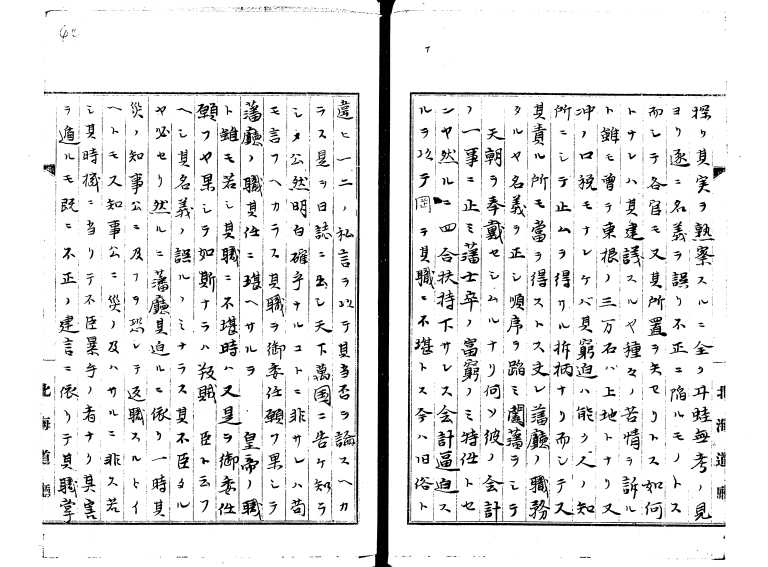 探リ其実ヲ熟案スルニ全ク耳眭無考ノ見
ヨリ遂ニ名義ヲ誤リ不正ニ陥ルモノトス
而シテ各官モ又其所置ヲ失セリトス如何
トナレハ其建議スルヤ種々ノ苦情ヲ訴ル
ト雖モ曽テ東根ノ三万石ハ上地トナリ又
冲ノ口税モナケレバ其窮迫ハ能ク人ノ知
所ニシテ止ムヲ得サル折柄ナリ而シテ又
其責ル所モ當ヲ得ストス夫レ藩廳ノ職務
タルヤ名義ヲ正シ順序ヲ踏ミ闔藩ヲシテ
天朝ヲ奉戴セシムルナリ何ソ彼ノ会計
ノ一事ニ止ミ藩士卒ノ富窮ノミ特任トセ
ンヤ然ルニ四合扶持下サレス会計逼迫ス
ルヲ以テ岡ヲ其職ニ不堪トス今ハ旧俗ト
違ヒ一二ノ私言ヲ以テ其當否ヲ論スヘカ
ラス是ヲ日誌ニ出シ天下萬国ニ告ケ知ラ
シメ公然明白確乎ナルコトニ非サレハ苟
モ言フヘカラス其職ヲ御委任願フ果シテ
藩廳ノ職其任ニ堪ヘサルヲ 皇帝ノ職
ト雖モ若シ其職ニ不堪時ハ又是ヲ御委任
願フヤ果シテ如斯ナラハ叛賊 臣ト云フ
ヘシ其名義ノ誤ルノミナラス其不臣タル
ヤ必セリ然ルニ藩廳其迫ルニ依リ一時其
災ノ知事公ニ及フヲ恐レテ返職スルトイ
ヘトモス知事公ニ災ノ及ハサルニ非ス若
シ其時機ニ当リテ不臣暴手ノ者ナリ其害
ヲ遁ルモ既ニ不正ノ建言ニ依リテ其職掌
北海道廳
北海道廳